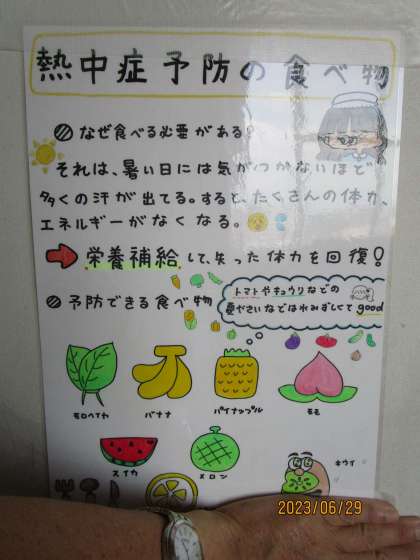 熱中症予防の食べ物
なぜ食べる必要がある?
それは、暑い日には気がつかないほど
多くの汗が出てる。すると、たくさんの体力、
エネルギーがなくなる。
栄養補給して、失った体力を回復!
予防できる食べ物
トマトやキュウリなどの
夏やさいなどは水みずしくて good
モロヘイヤ
バナナ
パイナップル
モモ
スイカ
メロン
キウイ
2023/06/29